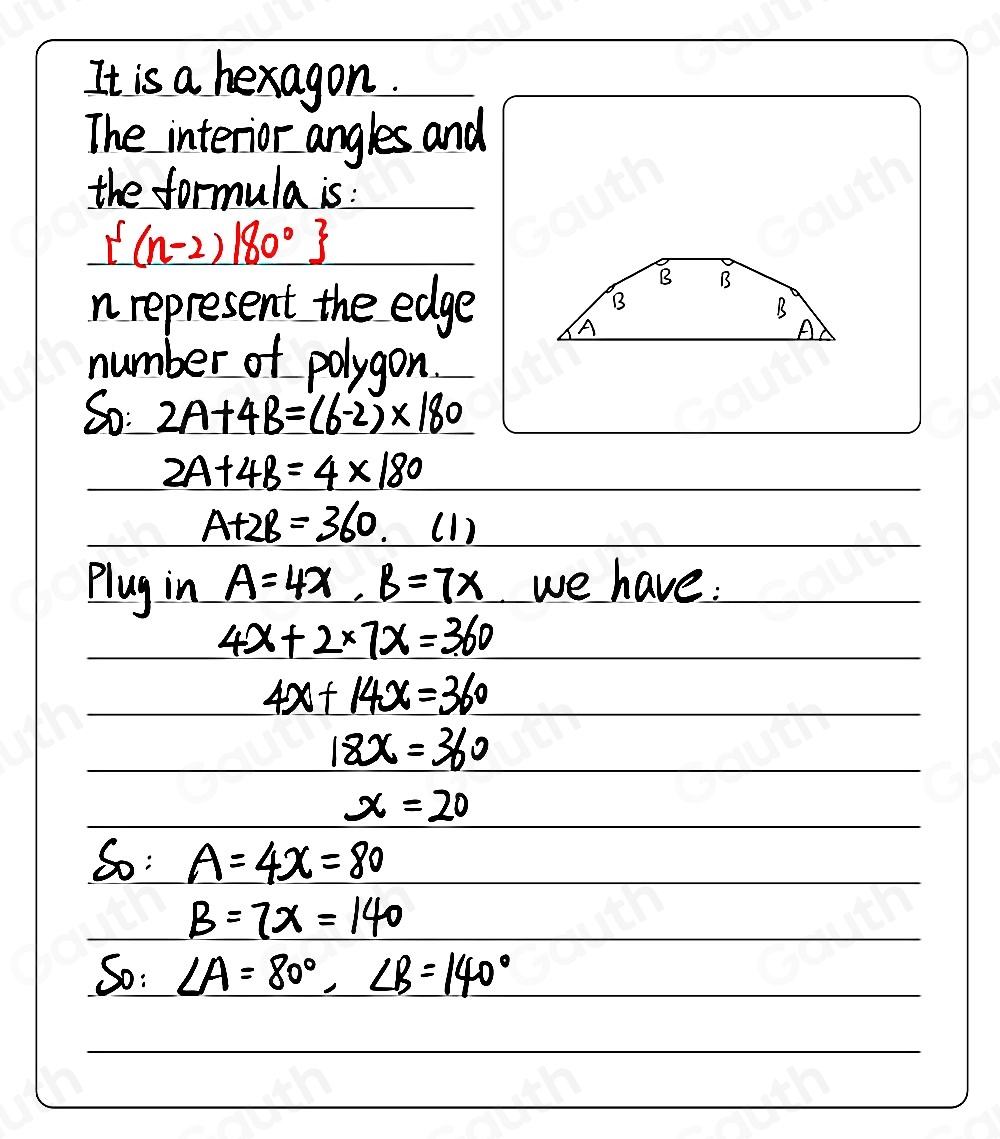 It is a hexagon.
The interior angles and
the formula is:
{(n-2)180°}
n represent the edge
number of polygon.
So: 2A+4B=(6-2)×180
2A+4B=4×180
A+2B=360. (1)
Plug in A=4x, B=7x. we have:
4x+2×7x=360
4x+14x=360
18x=360
x=20
So: A=4x=80
B=7x=140
So: ∠A=80°, ∠B=140°
B B
B B
A A
Gauth